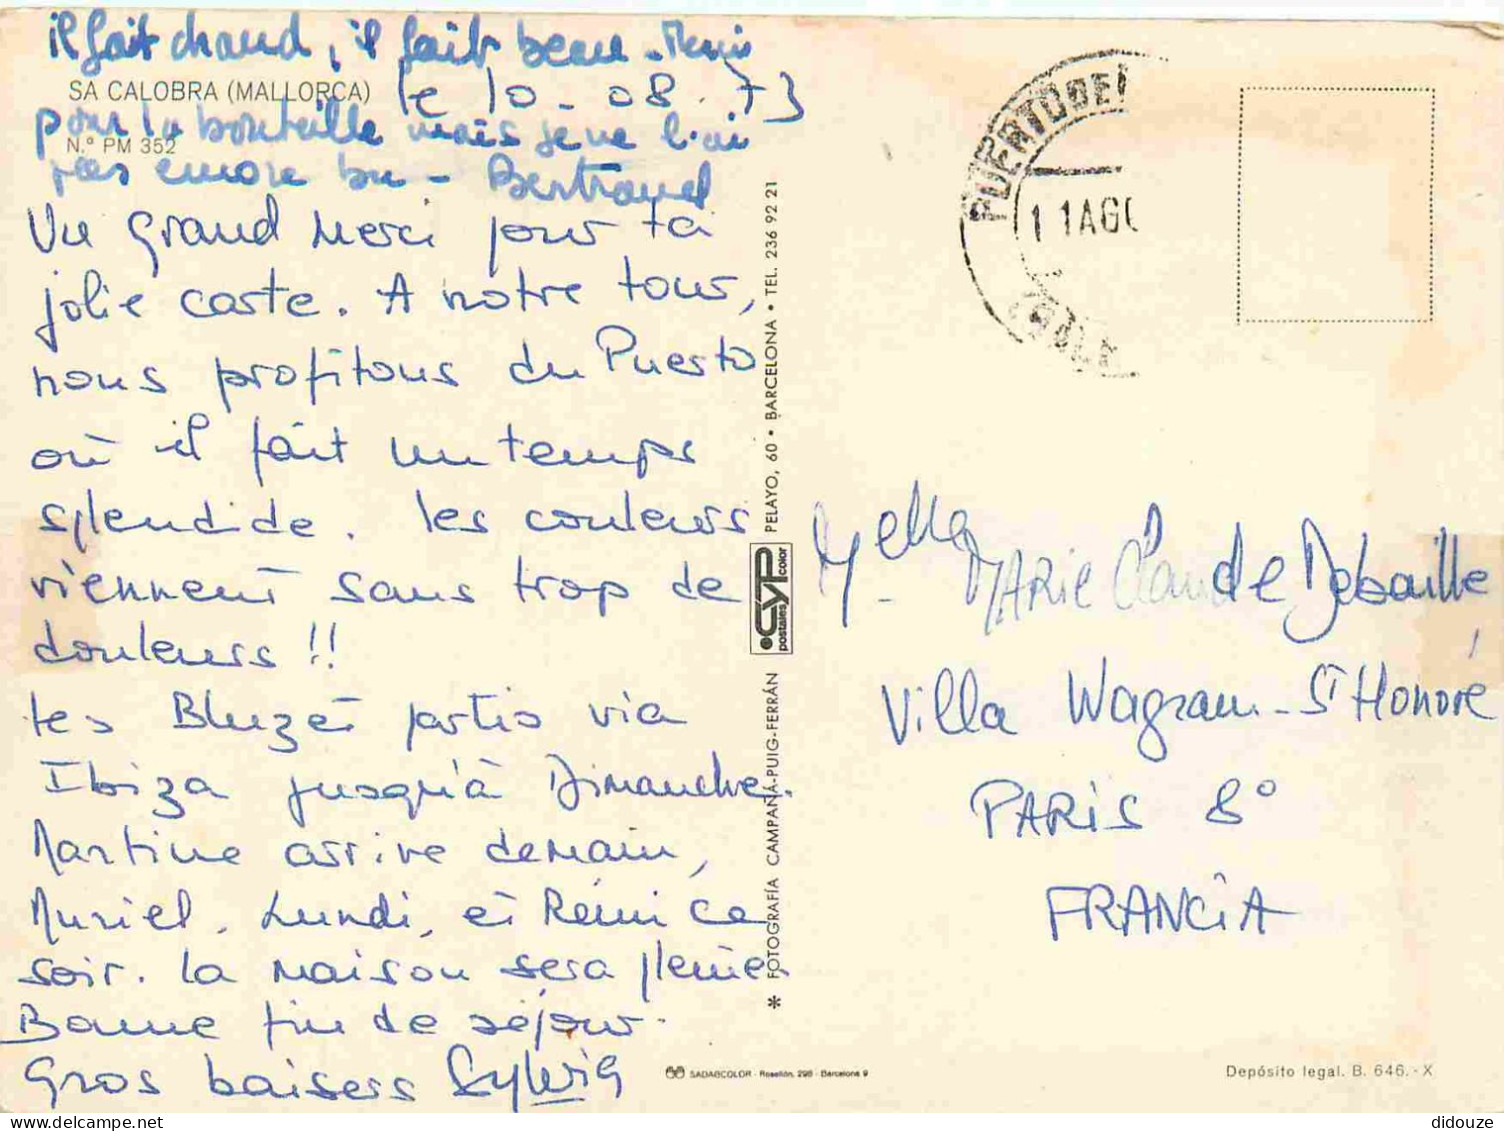 il fait chaud, il fait beau - Merci
SA CALOBRA (MALLORCA)
le 10 - 08. 73
pour la bouteille mais je ne l'ai
N.º PM 352
pas encore bu - Bertrand
Un grand merci pour ta
jolie carte. A notre tour,
nous profitons du Puerto
où il fait un temps
splendide. les couleurs
viennent sans trop de
douleurs !!
les Bluzet partis via
Ibiza jusqu'à Dimanche.
Martine arrive demain,
Muriel, Lundi, et Rémi ce
soir. la maison sera pleine
Bonne fin de séjour.
Gros baisers Sylvie
* FOTOGRAFÍA CAMPAÑÁ-PUIG-FERRÁN
CYP
postales color
PELAYO, 60 • BARCELONA • TEL. 236 92 21
SADABCOLOR - Rosellón, 298 - Barcelona 9
PUERTO DE
11 AGO
Melle Marie Claude Debaille
Villa Wagram - St Honoré
PARIS 8°
FRANCIA
Depósito legal. B. 646.-X
didouze